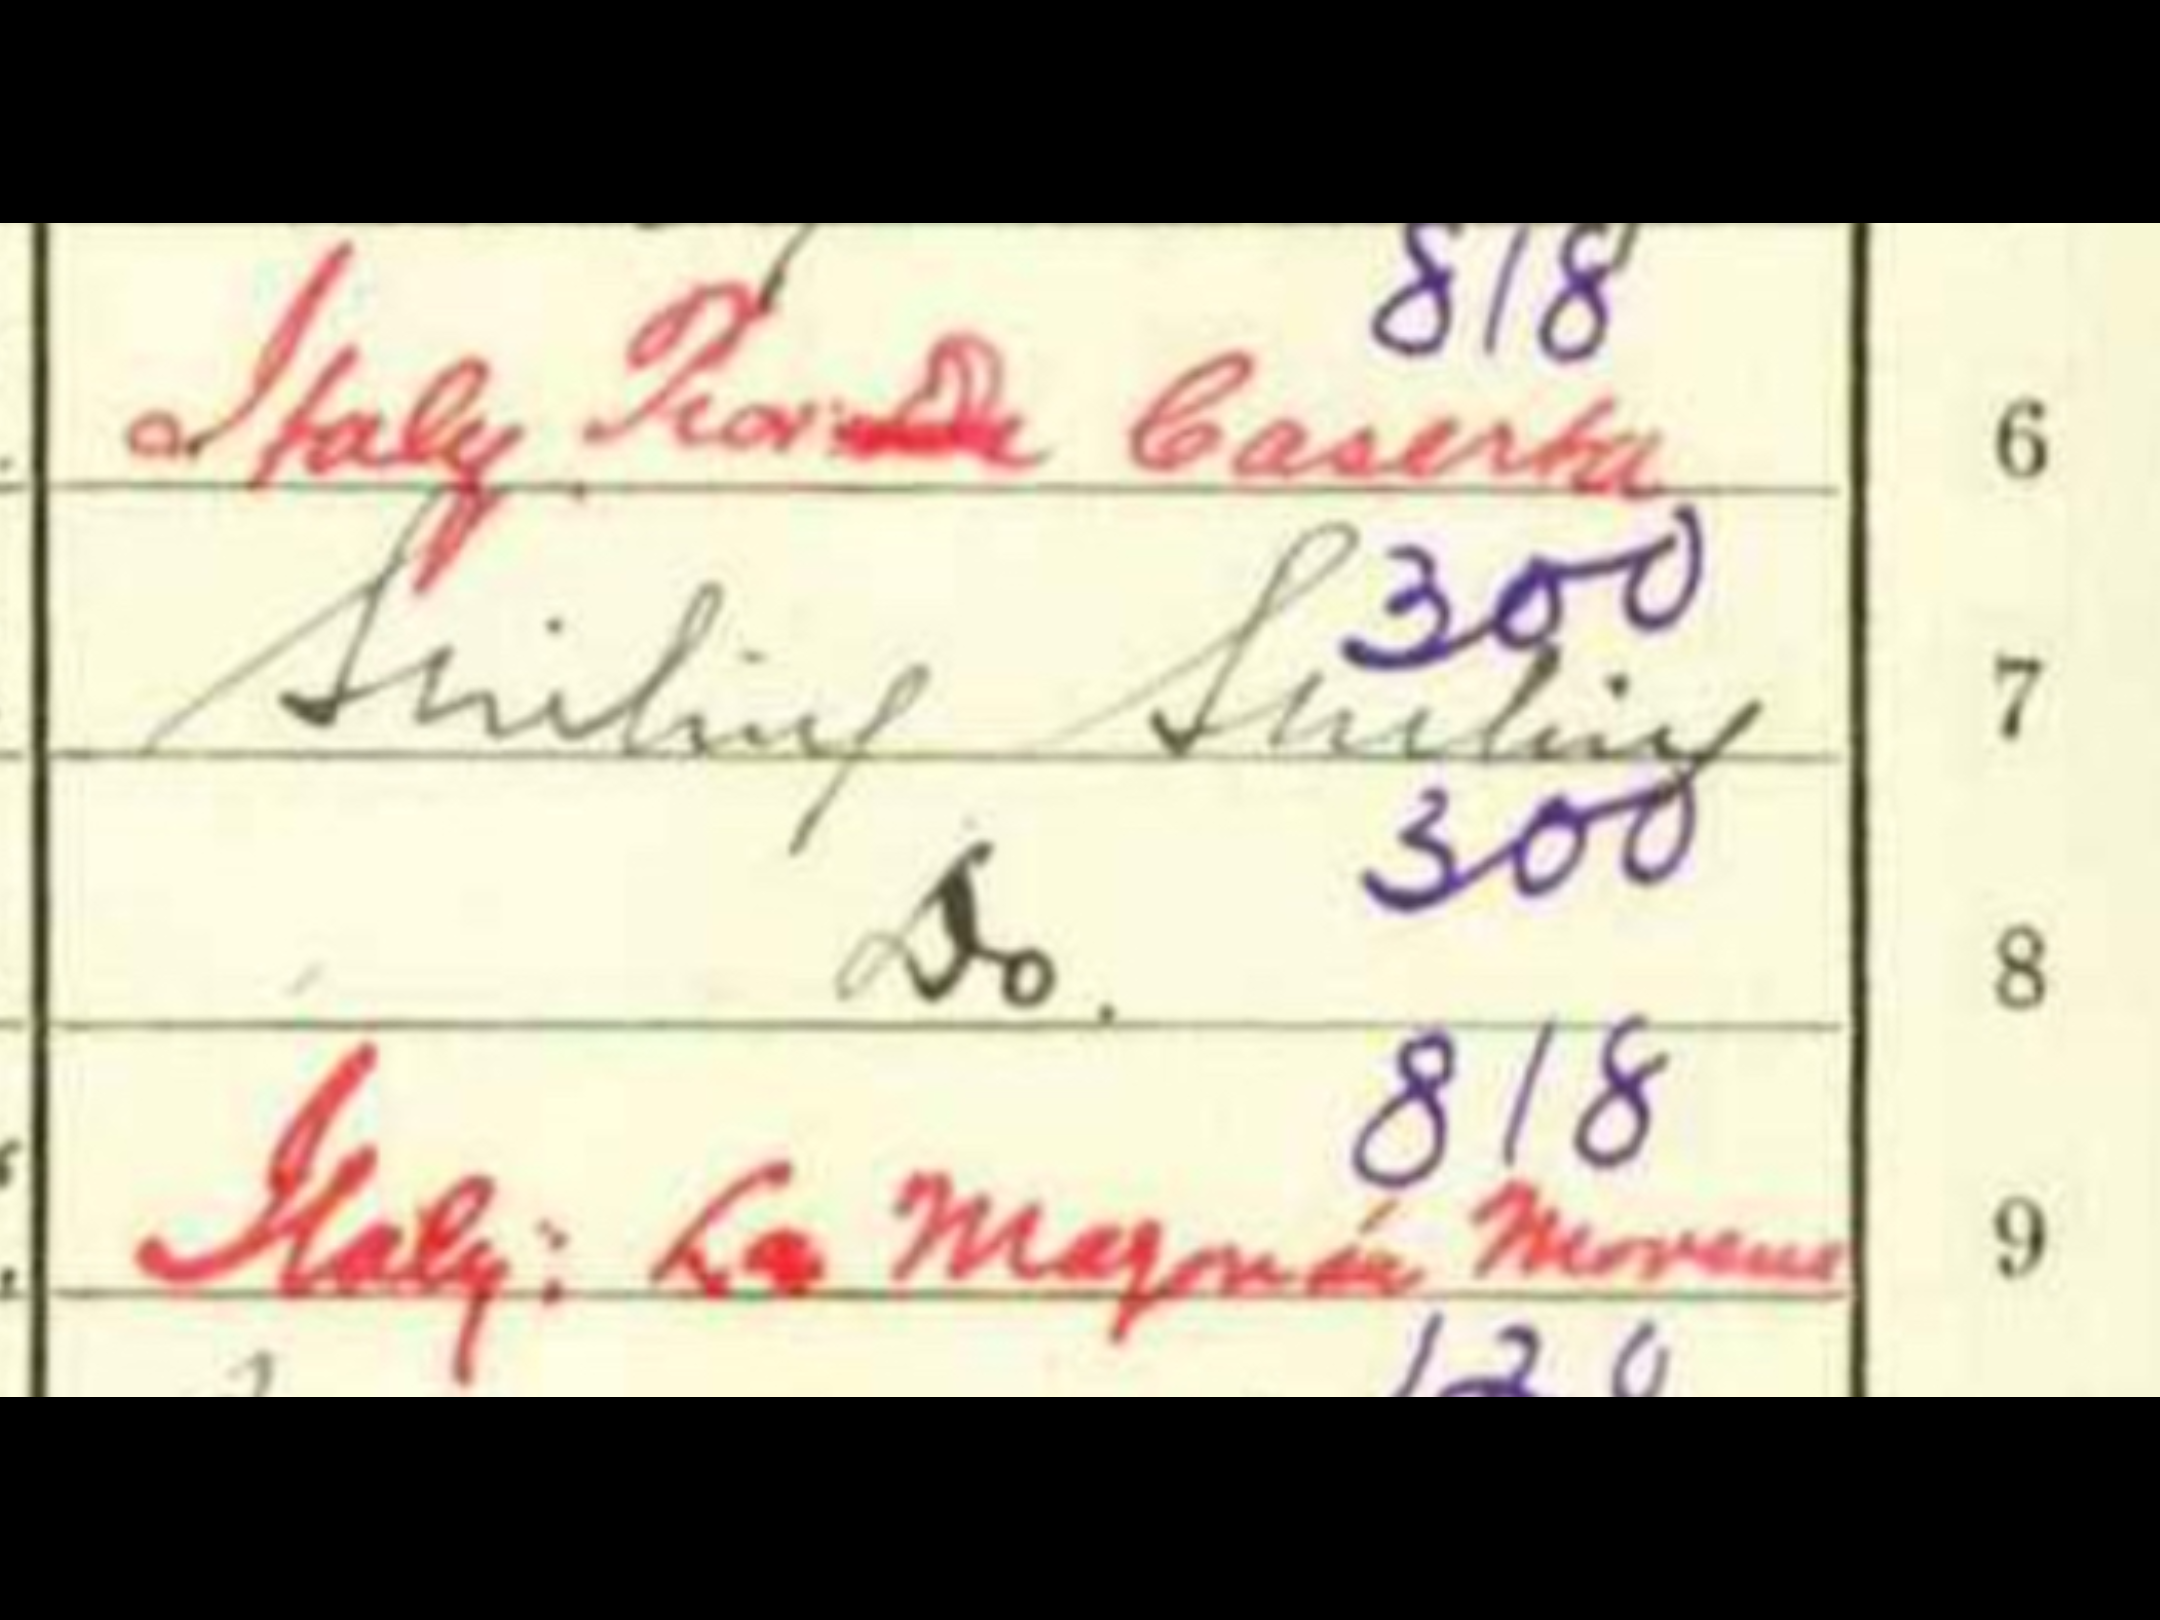 818
Italy Provi De Caserta 6
300
Stirling Stirling 7
300
Do. 8
818
Italy: La 9